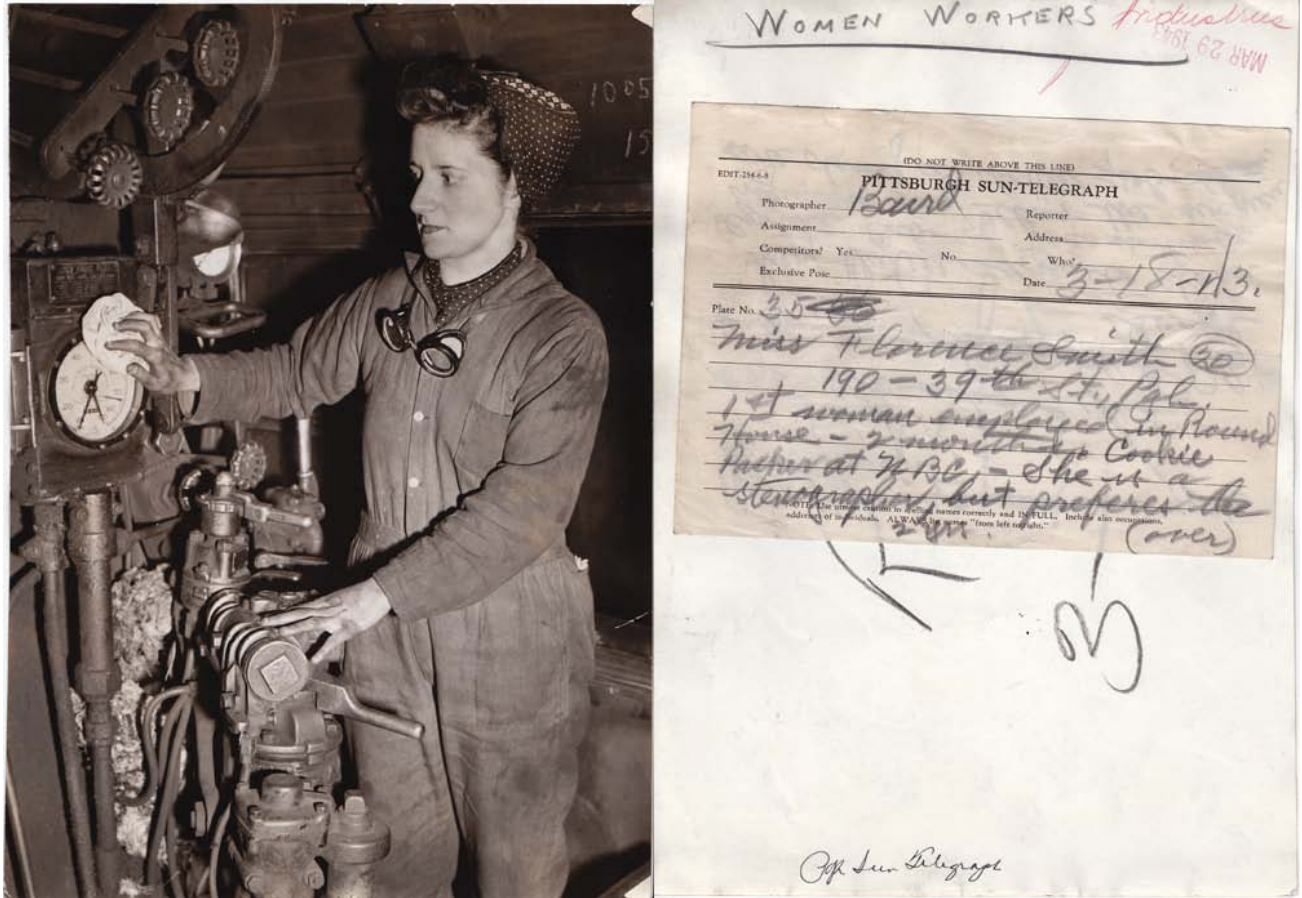 1005
15
WOMEN WORKERS Industries
MAR 29 1943
(DO NOT WRITE ABOVE THIS LINE)
EDIT-254-6-8
PITTSBURGH SUN-TELEGRAPH
Photographer Baird Reporter
Assignment Address
Competitors? Yes No Who?
Exclusive Pose Date 3-18-43.
Plate No. 35
Miss Florence Smith (20)
190 - 39th St., Pgh.
1st woman employed in Round
House - 2 months. Cookie
Packer at NBC - She is a
stenographer but preferes the
NOTE: Use utmost caution in names correctly and IN FULL. Include also occupations,
addresses of individuals. ALWAYS names "from left to right."
(over)
3-
Pgh Sun Telegraph